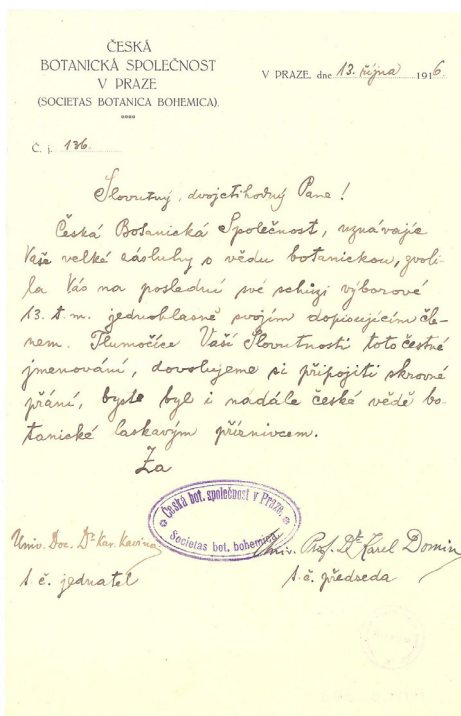 ČESKÁ
BOTANICKÁ SPOLEČNOST
V PRAZE
(SOCIETAS BOTANICA BOHEMICA).
V PRAZE, dne 13. října 1916.
Č. j. 136.
Slovutný, dvojctihodný Pane!
Česká Botanická Společnost, uznávajíc
Vaše velké zásluhy o vědu botanickou, zvoli-
la Vás na poslední své schůzi výborové
13. t. m. jednohlasně svojím dopisujícím čle-
nem. Tlumočíce Vaší Slovutnosti toto čestné
jmenování, dovolujeme si připojiti skrovné
přání, byste byl i nadále české vědě bo-
tanické laskavým příznivcem.
Za
Česká bot. společnost v Praze.
Societas bot. bohemica
Univ. Doc. Dr Kar. Kavina
t. č. jednatel
Univ. Prof. Dr Karel Domin
t. č. předseda